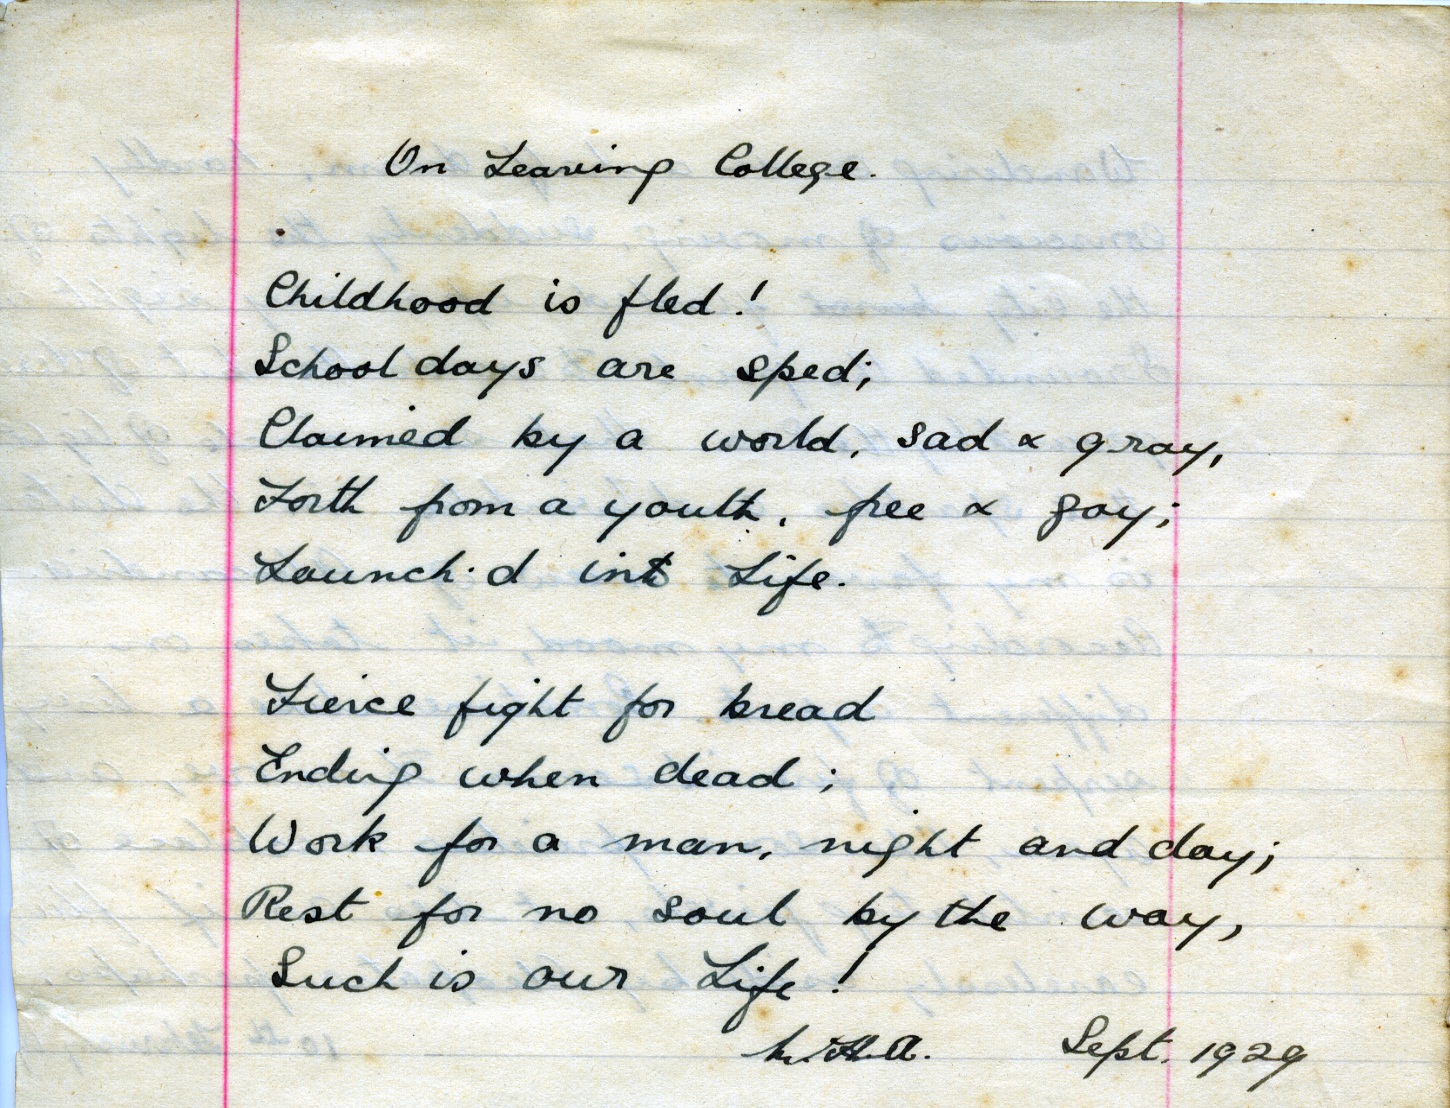 On Leaving College.
Childhood is fled!
School days are sped;
Claimed by a world, sad & gray,
Forth from a youth, free & gay;
Launch'd into Life.
Fierce fight for bread
Ending when dead;
Work for a man, night and day;
Rest for no soul by the way,
Such is our Life!
Sept. 1929